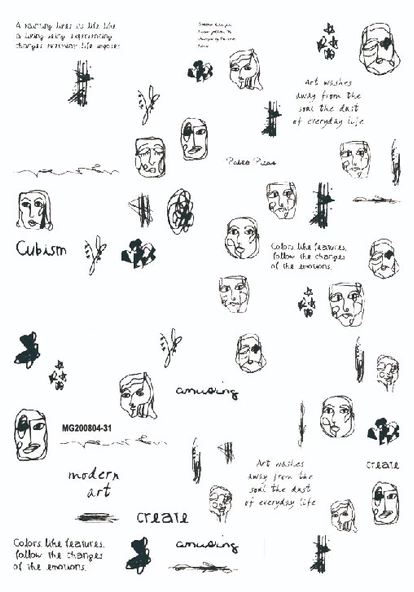 A painting lives its life like
a living being experiencing
changes everyday life imposes
Art washes
away from the
soul the dust
of everyday life
Pablo Picas
Cubism
Colors, like features,
follow the changes
of the emotions.
amusing
MG200804-31
modern
art
Art washes
away from the
soul the dust
of everyday life
create
create
Colors, like features,
follow the changes
of the emotions.
amusing